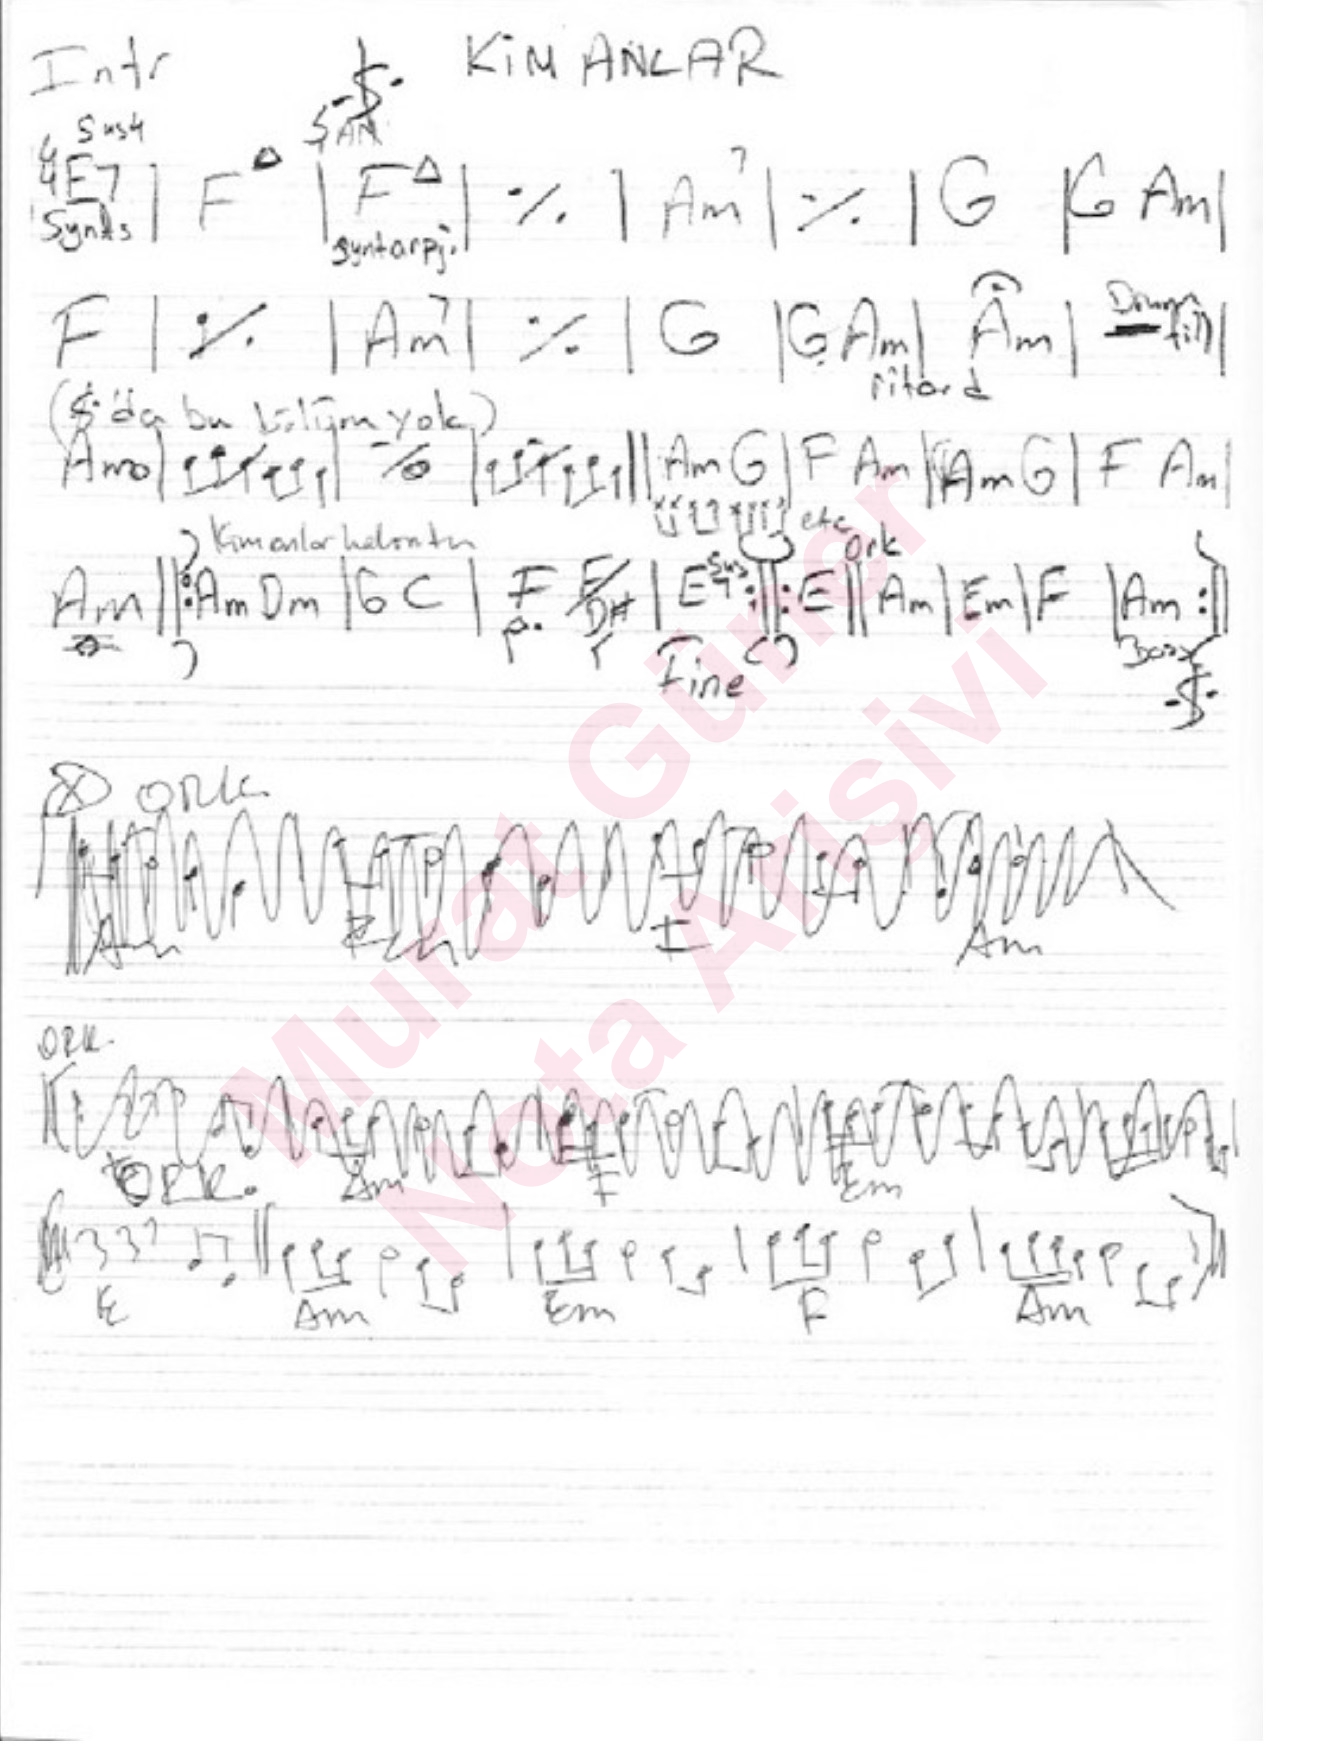 Intr 𝄋 KiM ANLAR
Sus4 ŞAN
4/4 E7 | F△ | F△ | ٪ | Am7 | ٪ | G | G Am |
Synths syntarpj.
F | ٪ | Am7 | ٪ | G | G Am | Am |
ritard
(𝄋'da bu bölüm yok)
Am | ٪ | Am G | F Am | Am G | F Am |
etc
Kim anlar ORK
Am ||: Am Dm | G C | F E/D# | E sus4 :||: E || Am | Em | F | Am :||
Fine 𝄋
ORK.
Am F Am
ORK.
ORK. Am F Em
E Am Em F Am
Murat Güner
Nota Arisivi